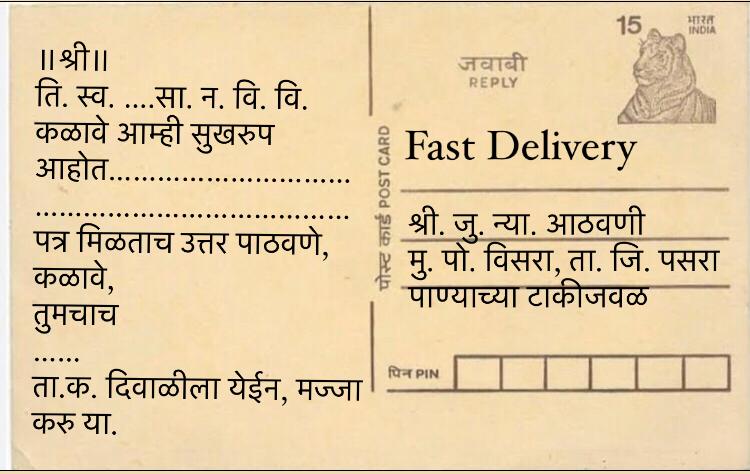 ॥श्री॥
ति. स्व. ....सा. न. वि. वि.
कळावे आम्ही सुखरुप
आहोत..............................
.......................................
पत्र मिळताच उत्तर पाठवणे,
कळावे,
तुमचाच
......
ता.क. दिवाळीला येईन, मज्जा
करु या.
पोस्ट कार्ड POST CARD
जवाबी
REPLY
15 भारत
INDIA
Fast Delivery
श्री. जु. न्या. आठवणी
मु. पो. विसरा, ता. जि. पसरा
पाण्याच्या टाकीजवळ
पिन PIN